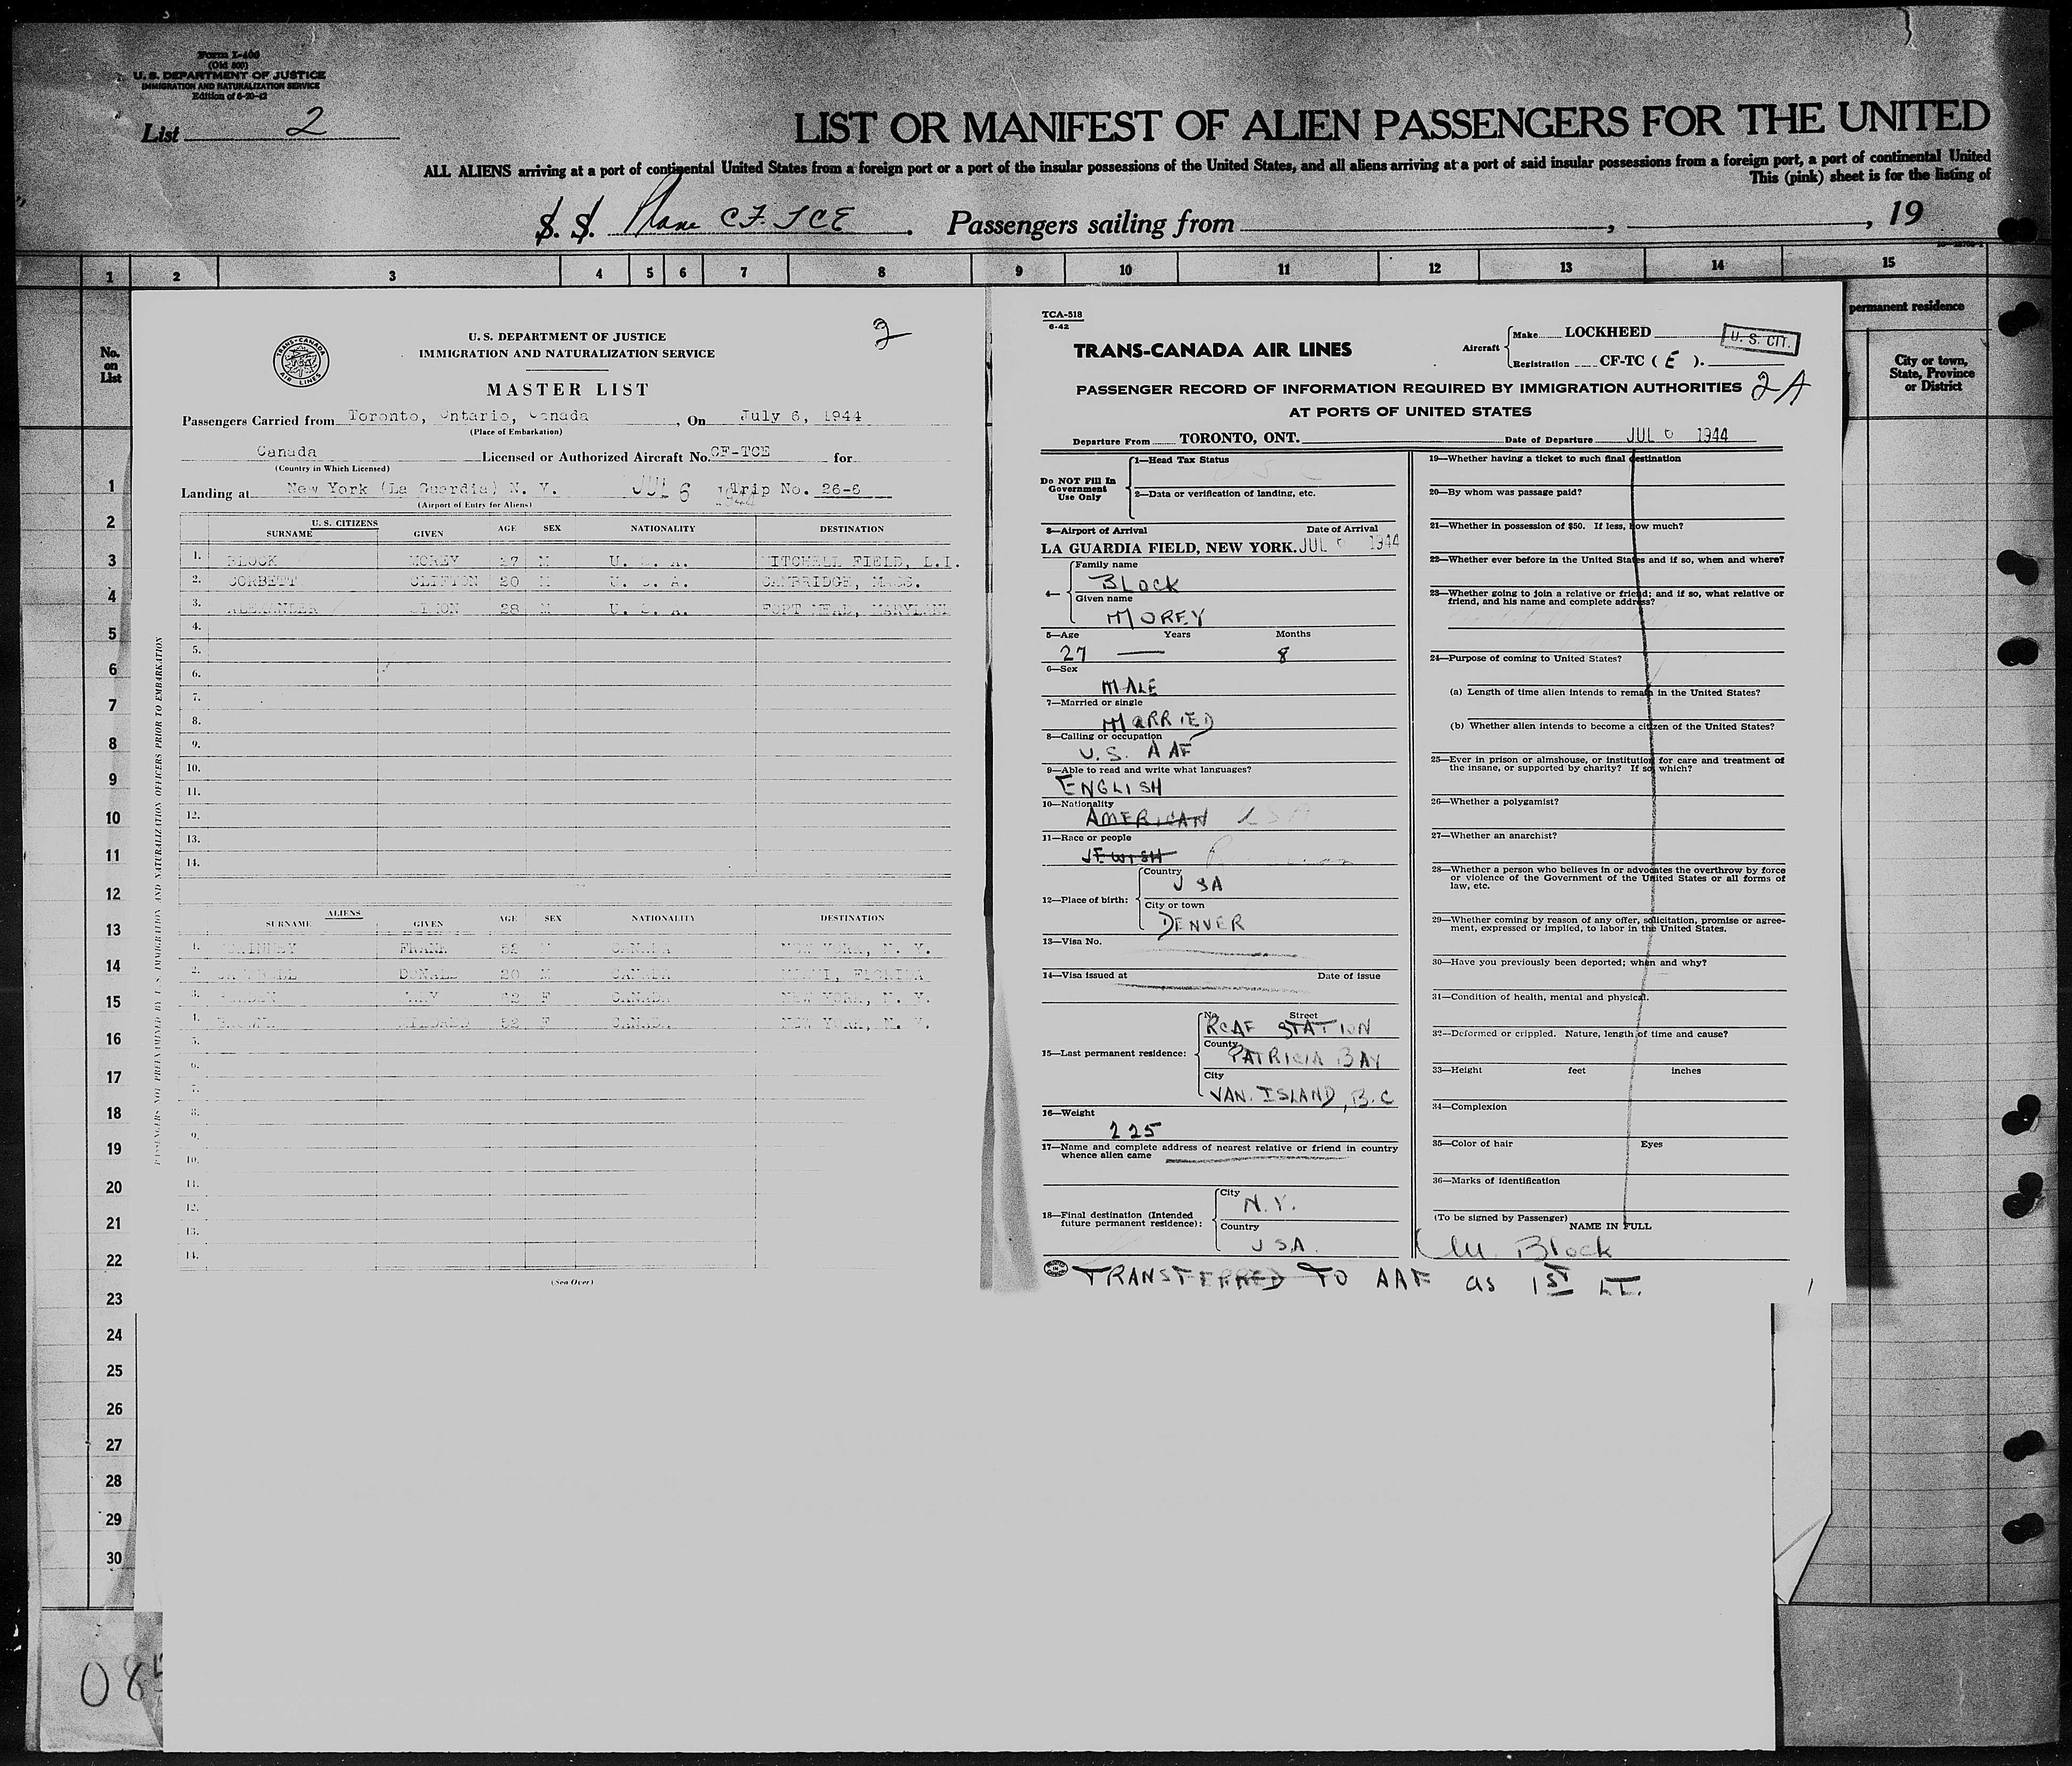 Form I-400
(Old 500)
U. S. DEPARTMENT OF JUSTICE
IMMIGRATION AND NATURALIZATION SERVICE
Edition of 6-20-42
List 2
LIST OR MANIFEST OF ALIEN PASSENGERS FOR THE UNITED
ALL ALIENS arriving at a port of continental United States from a foreign port or a port of the insular possessions of the United States, and all aliens arriving at a port of said insular possessions from a foreign port, a port of continental United
This (pink) sheet is for the listing of
S. S. Plane CF. TCE . Passengers sailing from , , 19
1 2 3 4 5 6 7 8 9 10 11 12 13 14 15
permanent residence
No. on List
City or town, State, Province or District
1
2
3
4
5
6
7
8
9
10
11
12
13
14
15
16
17
18
19
20
21
22
23
24
25
26
27
28
29
30
TRANS-CANADA AIR LINES
U. S. DEPARTMENT OF JUSTICE
IMMIGRATION AND NATURALIZATION SERVICE
2
MASTER LIST
Passengers Carried from Toronto, Ontario, Canada , On July 6, 1944
(Place of Embarkation)
Canada Licensed or Authorized Aircraft No. CF-TCE for
(Country in Which Licensed)
Landing at New York (La Guardia) N. Y. JUL 6 1944 Trip No. 26-6
(Airport of Entry for Aliens)
U. S. CITIZENS
SURNAME GIVEN AGE SEX NATIONALITY DESTINATION
1. BLOCK MOREY 27 M U. S. A. MITCHELL FIELD, L.I.
2. CORBETT CLIFTON 20 M U. S. A. CAMBRIDGE, MASS.
3. ALEXANDER 28 M U. S. A. FORT MEAD, MARYLAND
4.
5.
6.
7.
8.
9.
10.
11.
12.
13.
14.
ALIENS
SURNAME GIVEN AGE SEX NATIONALITY DESTINATION
1. FRANK 52 M CANADA NEW YORK, N. Y.
2. DONALD 20 M CANADA MIAMI, FLORIDA
3. F CANADA NEW YORK, N. Y.
4. 52 F CANADA NEW YORK, N. Y.
5.
6.
7.
8.
9.
10.
11.
12.
13.
14.
(See Over)
PASSENGERS NOT PREEXAMINED BY U. S. IMMIGRATION AND NATURALIZATION OFFICERS PRIOR TO EMBARKATION
TCA-518
6-42
TRANS-CANADA AIR LINES
Aircraft Make LOCKHEED
Registration CF-TC ( E ).
U. S. CIT.
PASSENGER RECORD OF INFORMATION REQUIRED BY IMMIGRATION AUTHORITIES 2A
AT PORTS OF UNITED STATES
Departure From TORONTO, ONT. Date of Departure JUL 6 1944
Do NOT Fill In Government Use Only
1—Head Tax Status
2—Data or verification of landing, etc.
3—Airport of Arrival Date of Arrival
LA GUARDIA FIELD, NEW YORK. JUL 6 1944
4— Family name
BLOCK
Given name
MOREY
5—Age Years Months
27 — 8
6—Sex
MALE
7—Married or single
MARRIED
8—Calling or occupation
U.S. AAF
9—Able to read and write what languages?
ENGLISH
10—Nationality
AMERICAN USA
11—Race or people
JEWISH
12—Place of birth: Country
USA
City or town
DENVER
13—Visa No.
14—Visa issued at Date of issue
15—Last permanent residence: No. Street
RCAF STATION
County
PATRICIA BAY
City
VAN. ISLAND, B.C
16—Weight
225
17—Name and complete address of nearest relative or friend in country
whence alien came
18—Final destination (Intended future permanent residence): City
N.Y.
Country
USA.
19—Whether having a ticket to such final destination
20—By whom was passage paid?
21—Whether in possession of $50. If less, how much?
22—Whether ever before in the United States and if so, when and where?
23—Whether going to join a relative or friend; and if so, what relative or
friend, and his name and complete address?
24—Purpose of coming to United States?
(a) Length of time alien intends to remain in the United States?
(b) Whether alien intends to become a citizen of the United States?
25—Ever in prison or almshouse, or institution for care and treatment of
the insane, or supported by charity? If so, which?
26—Whether a polygamist?
27—Whether an anarchist?
28—Whether a person who believes in or advocates the overthrow by force
or violence of the Government of the United States or all forms of
law, etc.
29—Whether coming by reason of any offer, solicitation, promise or agree-
ment, expressed or implied, to labor in the United States.
30—Have you previously been deported; when and why?
31—Condition of health, mental and physical.
32—Deformed or crippled. Nature, length of time and cause?
33—Height feet inches
34—Complexion
35—Color of hair Eyes
36—Marks of identification
(To be signed by Passenger)
NAME IN FULL
M. Block
TRANSFERRED TO AAF as 1ST LT.
085